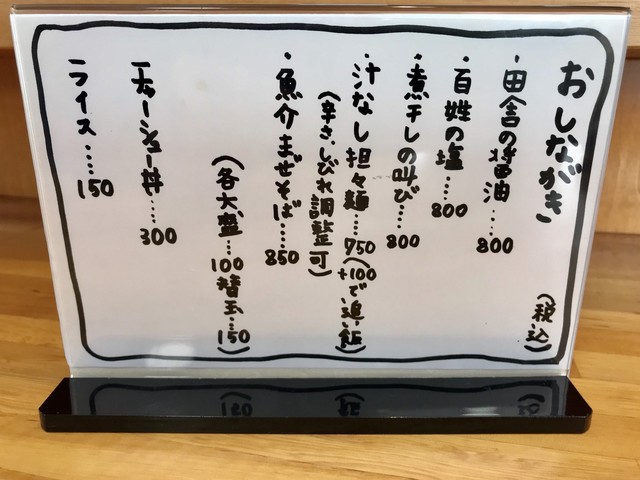 おしながき
(税込)
・田舎の醤油‥‥800
・百姓の塩‥‥800
・煮干しの叫び‥‥800
・汁なし担々麺‥‥750(+100で追い飯)
(辛さ、しびれ調整可)
・魚介まぜそば‥‥850
(各大盛‥‥100 替玉‥‥150)
チャーシュー丼‥‥300
ライス‥‥150